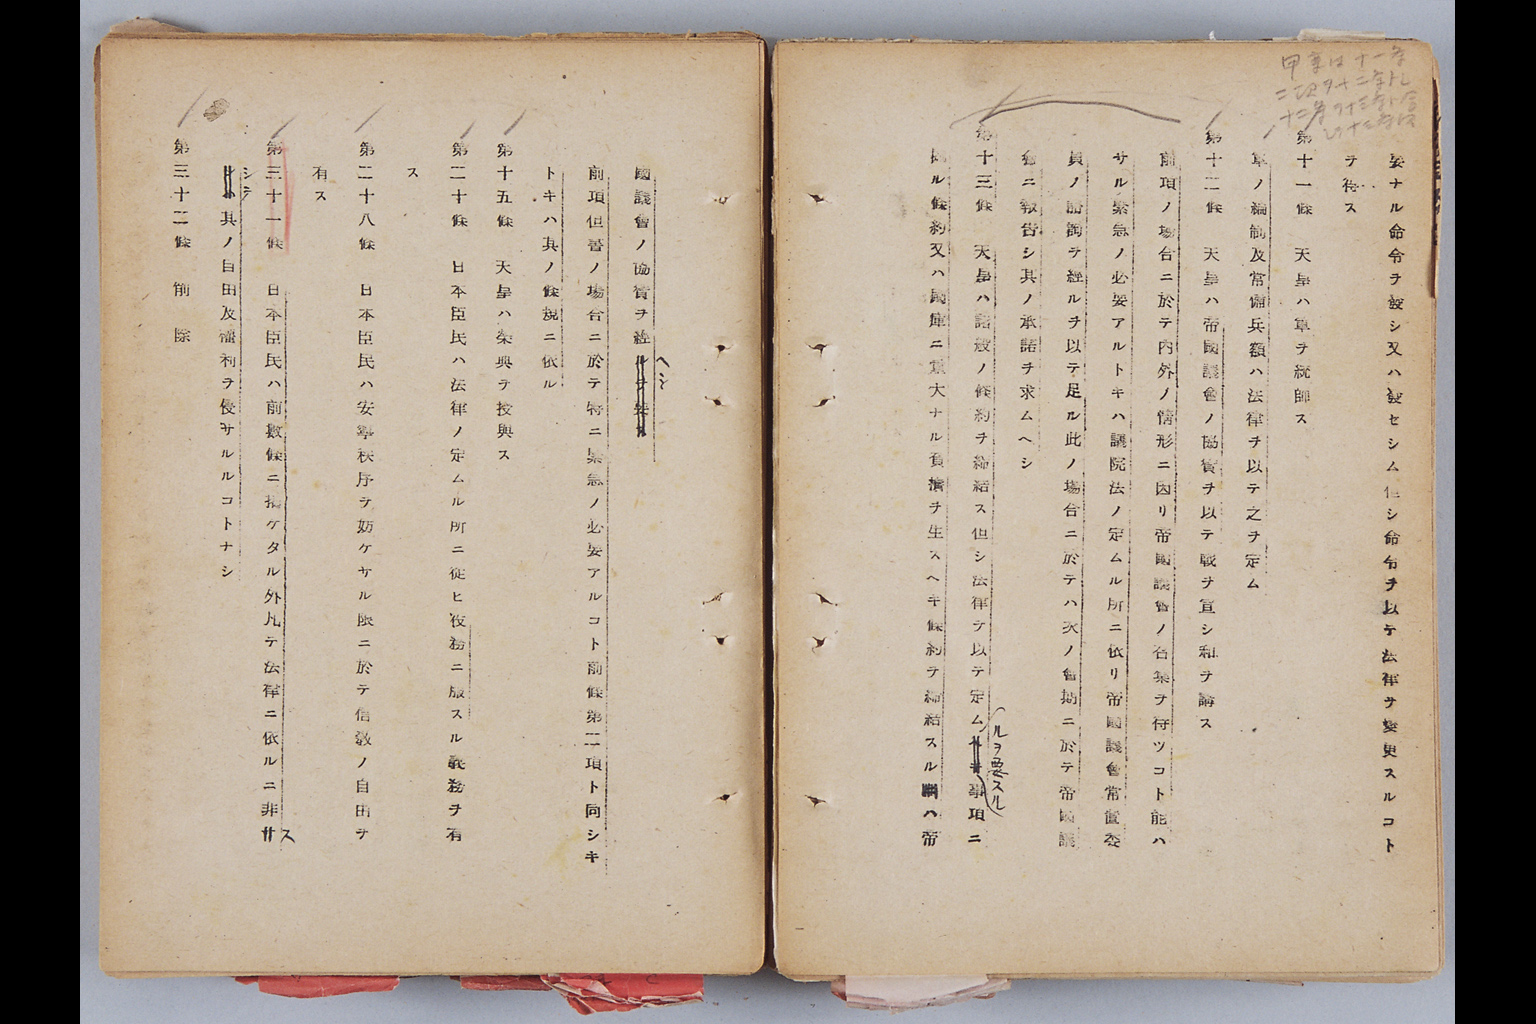 要ナル命令ヲ發シ又ハ發セシム但シ命令ヲ以テ法律ヲ變更スルコト
ヲ得ス
第十一條 天皇ハ軍ヲ統帥ス
軍ノ編制及常備兵額ハ法律ヲ以テ之ヲ定ム
第十二條 天皇ハ帝國議會ノ協賛ヲ以テ戰ヲ宣シ和ヲ講ス
前項ノ場合ニ於テ内外ノ情形ニ因リ帝國議會ノ召集ヲ待ツコト能ハ
サル緊急ノ必要アルトキハ議院法ノ定ムル所ニ依リ帝國議會常置委
員ノ諮詢ヲ經ルヲ以テ足ル此ノ場合ニ於テハ次ノ會期ニ於テ帝國議
會ニ報告シ其ノ承諾ヲ求ムヘシ
第十三條 天皇ハ諸般ノ條約ヲ締結ス但シ法律ヲ以テ定ム
ルヲ要スル
事項ニ
ル條約又ハ國庫ニ重大ナル負擔ヲ生スヘキ條約ヲ締結スル
ハ帝
國議會ノ協賛ヲ經
ヘシ
前項但書ノ場合ニ於テ特ニ緊急ノ必要アルコト前條第二項ト同シキ
トキハ其ノ條規ニ依ル
第十五條 天皇ハ榮典ヲ授與ス
第二十條 日本臣民ハ法律ノ定ムル所ニ從ヒ役務ニ服スル義務ヲ有
ス
第二十八條 日本臣民ハ安寧秩序ヲ妨ケサル限ニ於テ信敎ノ自由ヲ
有ス
第三十一條 日本臣民ハ前數條ニ揭ケタル外凡テ法律ニ依ルニ非
ス
シテ
其ノ自由及權利ヲ侵サルルコトナシ
第三十二條 削除